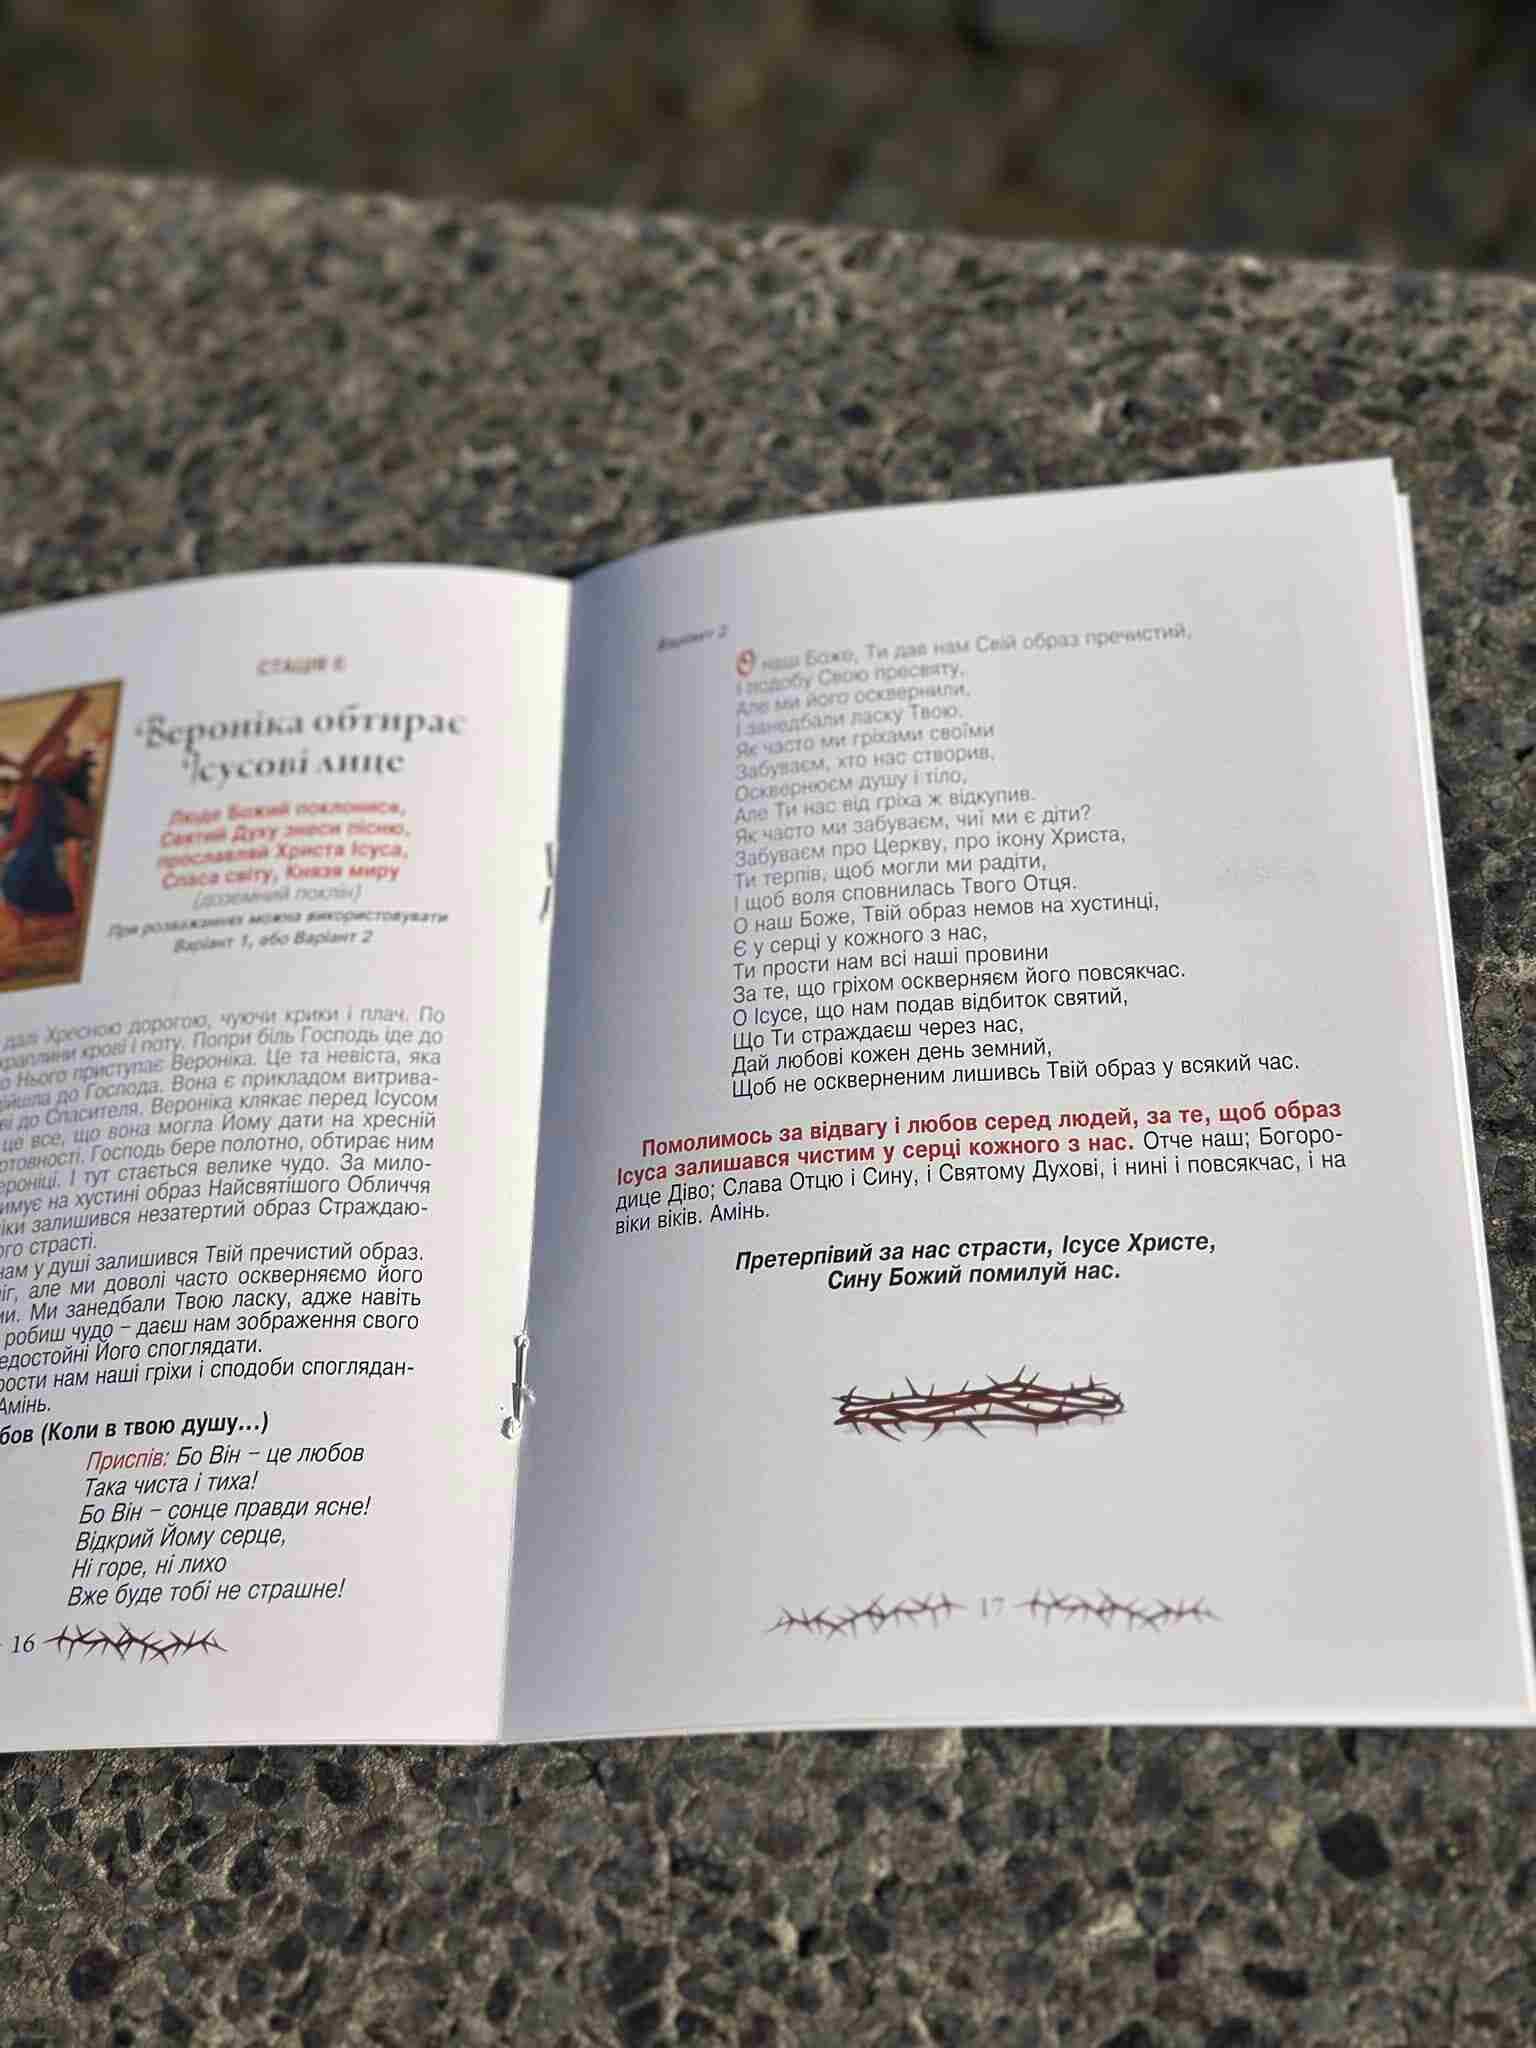 СТАЦІЯ 6
Вероніка обтирає
Ісусові лице
Люде Божий поклонися,
Святий Духу знеси пісню,
прославляй Христа Ісуса,
Спаса світу, Князя миру
(доземний поклін)
При розважаннях можна використовувати
Варіант 1, або Варіант 2
далі Хресною дорогою, чуючи крики і плач. По
краплини крові і поту. Попри біль Господь іде до
о Нього приступає Вероніка. Це та невіста, яка
ійшла до Господа. Вона є прикладом витрива-
ві до Спасителя. Вероніка клякає перед Ісусом
це все, що вона могла Йому дати на хресній
ртовності. Господь бере полотно, обтирає ним
ероніці. І тут стається велике чудо. За мило-
имує на хустині образ Найсвятішого Обличчя
іки залишився незатертий образ Страждаю-
ого страсті.
нам у душі залишився Твій пречистий образ.
іг, але ми доволі часто оскверняємо його
ми. Ми занедбали Твою ласку, адже навіть
робиш чудо – даєш нам зображення свого
едостойні Його споглядати.
рости нам наші гріхи і сподоби споглядан-
Амінь.
бов (Коли в твою душу...)
Приспів: Бо Він – це любов
Така чиста і тиха!
Бо Він – сонце правди ясне!
Відкрий Йому серце,
Ні горе, ні лихо
Вже буде тобі не страшне!
16
Варіант 2
О наш Боже, Ти дав нам Свій образ пречистий,
І подобу Свою пресвяту,
Але ми його осквернили,
І занедбали ласку Твою.
Як часто ми гріхами своїми
Забуваєм, хто нас створив,
Осквернюєм душу і тіло,
Але Ти нас від гріха ж відкупив.
Як часто ми забуваєм, чиї ми є діти?
Забуваєм про Церкву, про ікону Христа,
Ти терпів, щоб могли ми радіти,
І щоб воля сповнилась Твого Отця.
О наш Боже, Твій образ немов на хустинці,
Є у серці у кожного з нас,
Ти прости нам всі наші провини
За те, що гріхом оскверняєм його повсякчас.
О Ісусе, що нам подав відбиток святий,
Що Ти страждаєш через нас,
Дай любові кожен день земний,
Щоб не оскверненим лишивсь Твій образ у всякий час.
Помолимось за відвагу і любов серед людей, за те, щоб образ
Ісуса залишався чистим у серці кожного з нас. Отче наш; Богоро-
дице Діво; Слава Отцю і Сину, і Святому Духові, і нині і повсякчас, і на
віки віків. Амінь.
Претерпівий за нас страсти, Ісусе Христе,
Сину Божий помилуй нас.
17